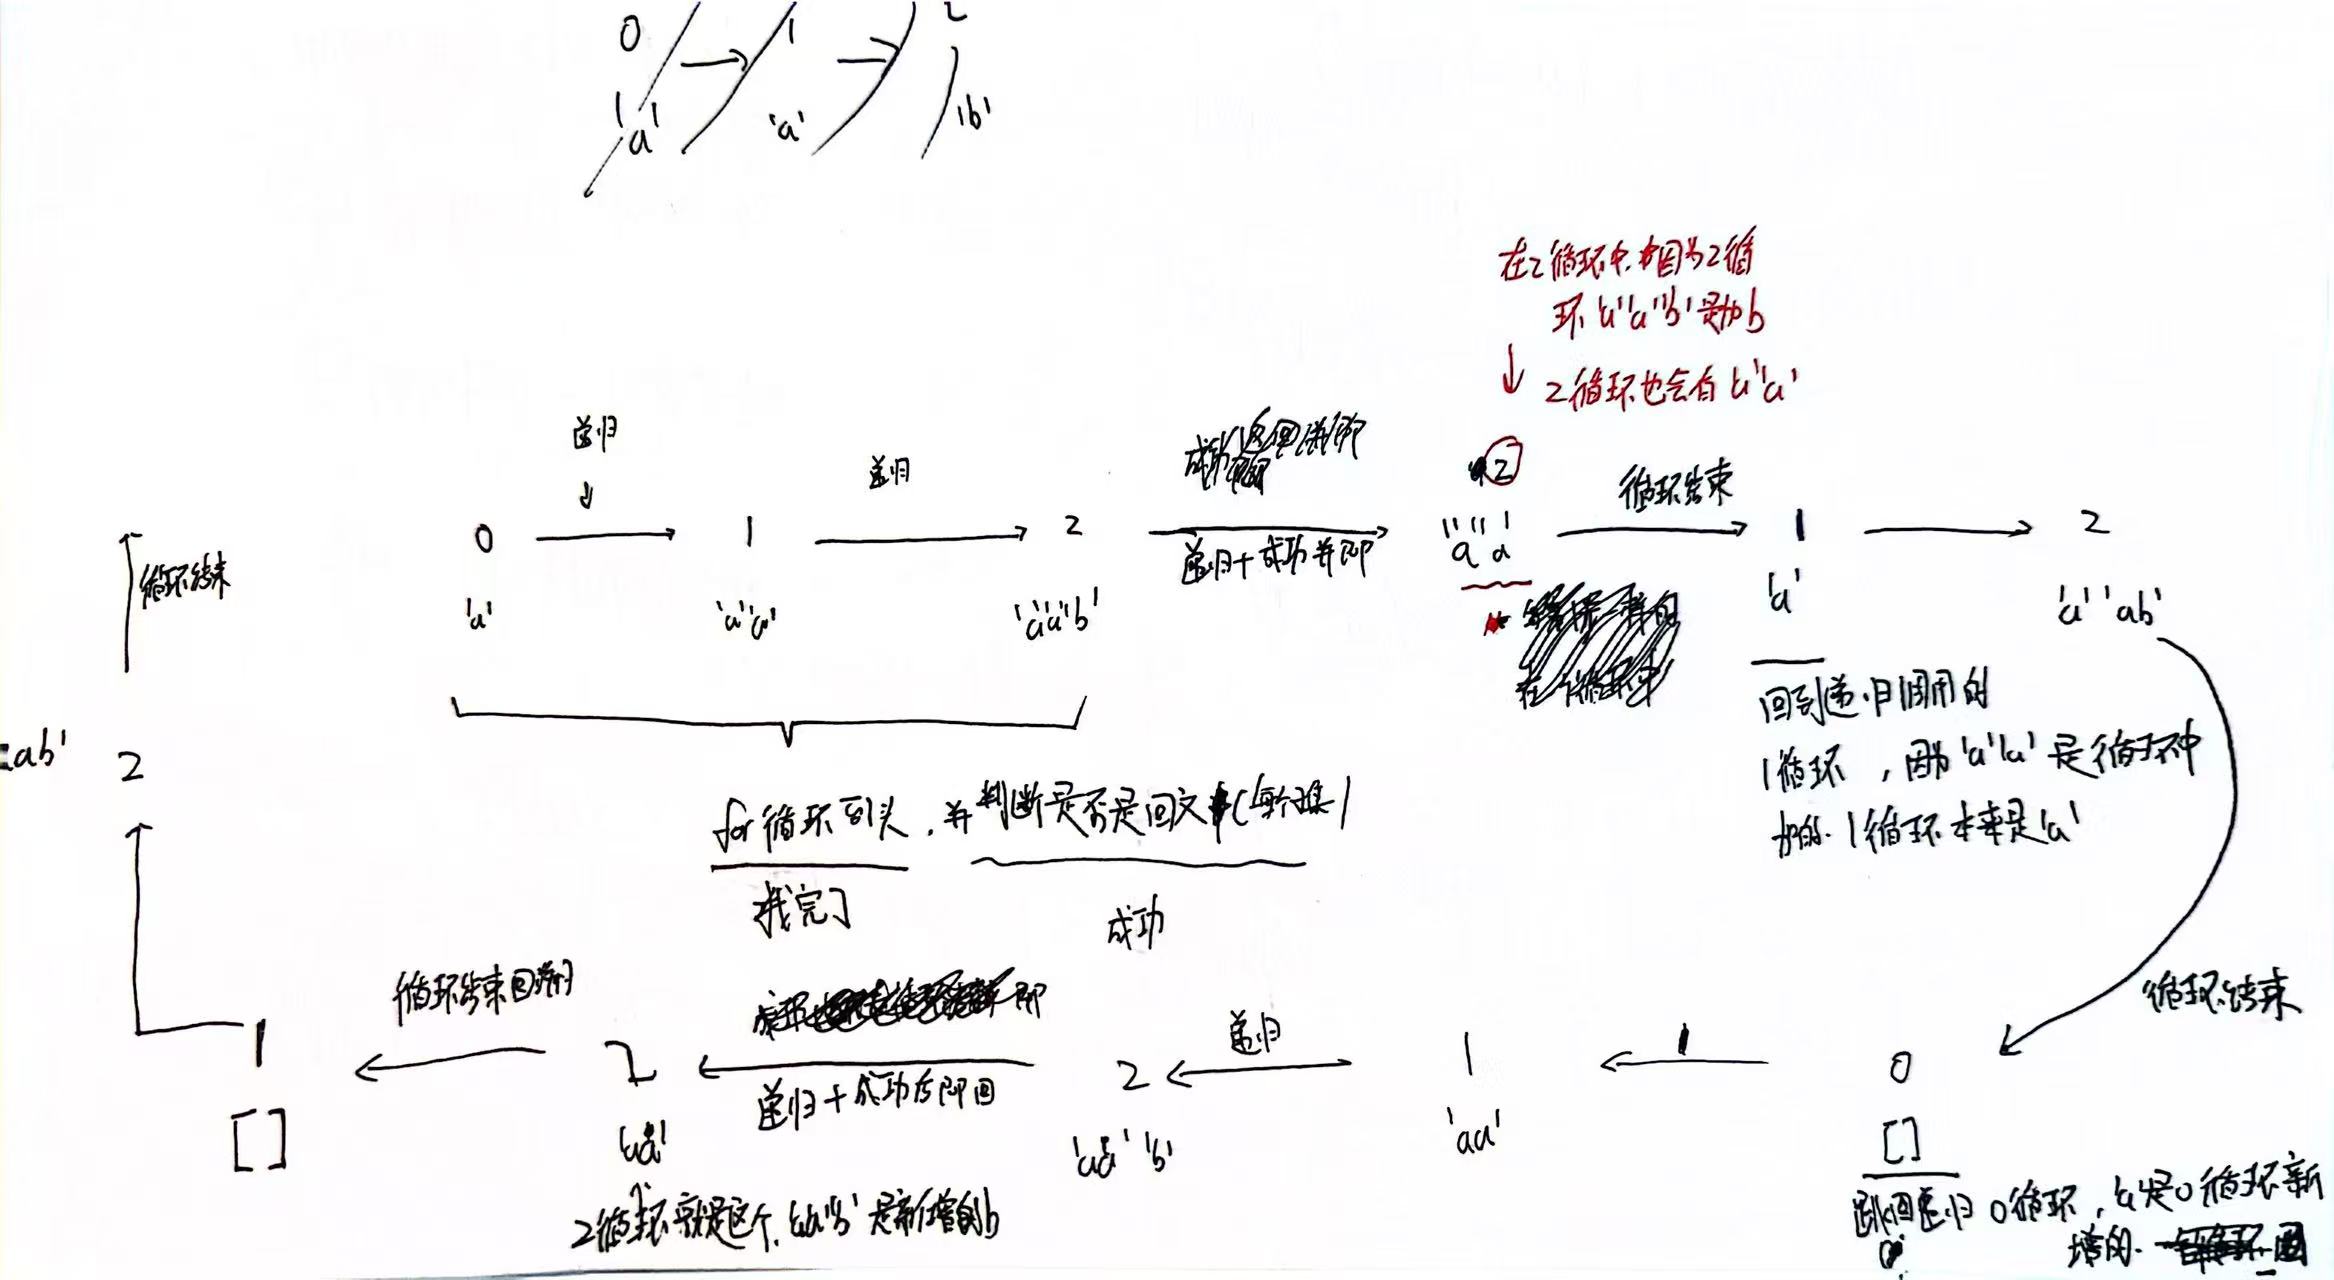 0 → 1 → 2
'a' 'a' 'b'
在2循环中,因为2循
环 'a''a''b'是加b
2循环也会有'a''a'
递归
递归
成功
2
循环结束
0 → 1 → 2
递归+成功并即
'a' 'a'
1 → 2
循环结束
'a'
'a''a'
'a''a''b'
'a'
'a''ab'
回到递归调用的
1循环,因为'a''a'是循环中
加的.1循环本来是'a'
ab'
2
for循环到头,并判断是否是回文
找完了
成功
循环结束
循环结束回溯
即
递归
1
2
2
1
0
递归+成功后即回
[]
'aa'
'aa' 'b'
'aa'
[]
2循环就是这个,'aa''b'是新增的b
跳回递归0循环,'a'是0循环新
增的.